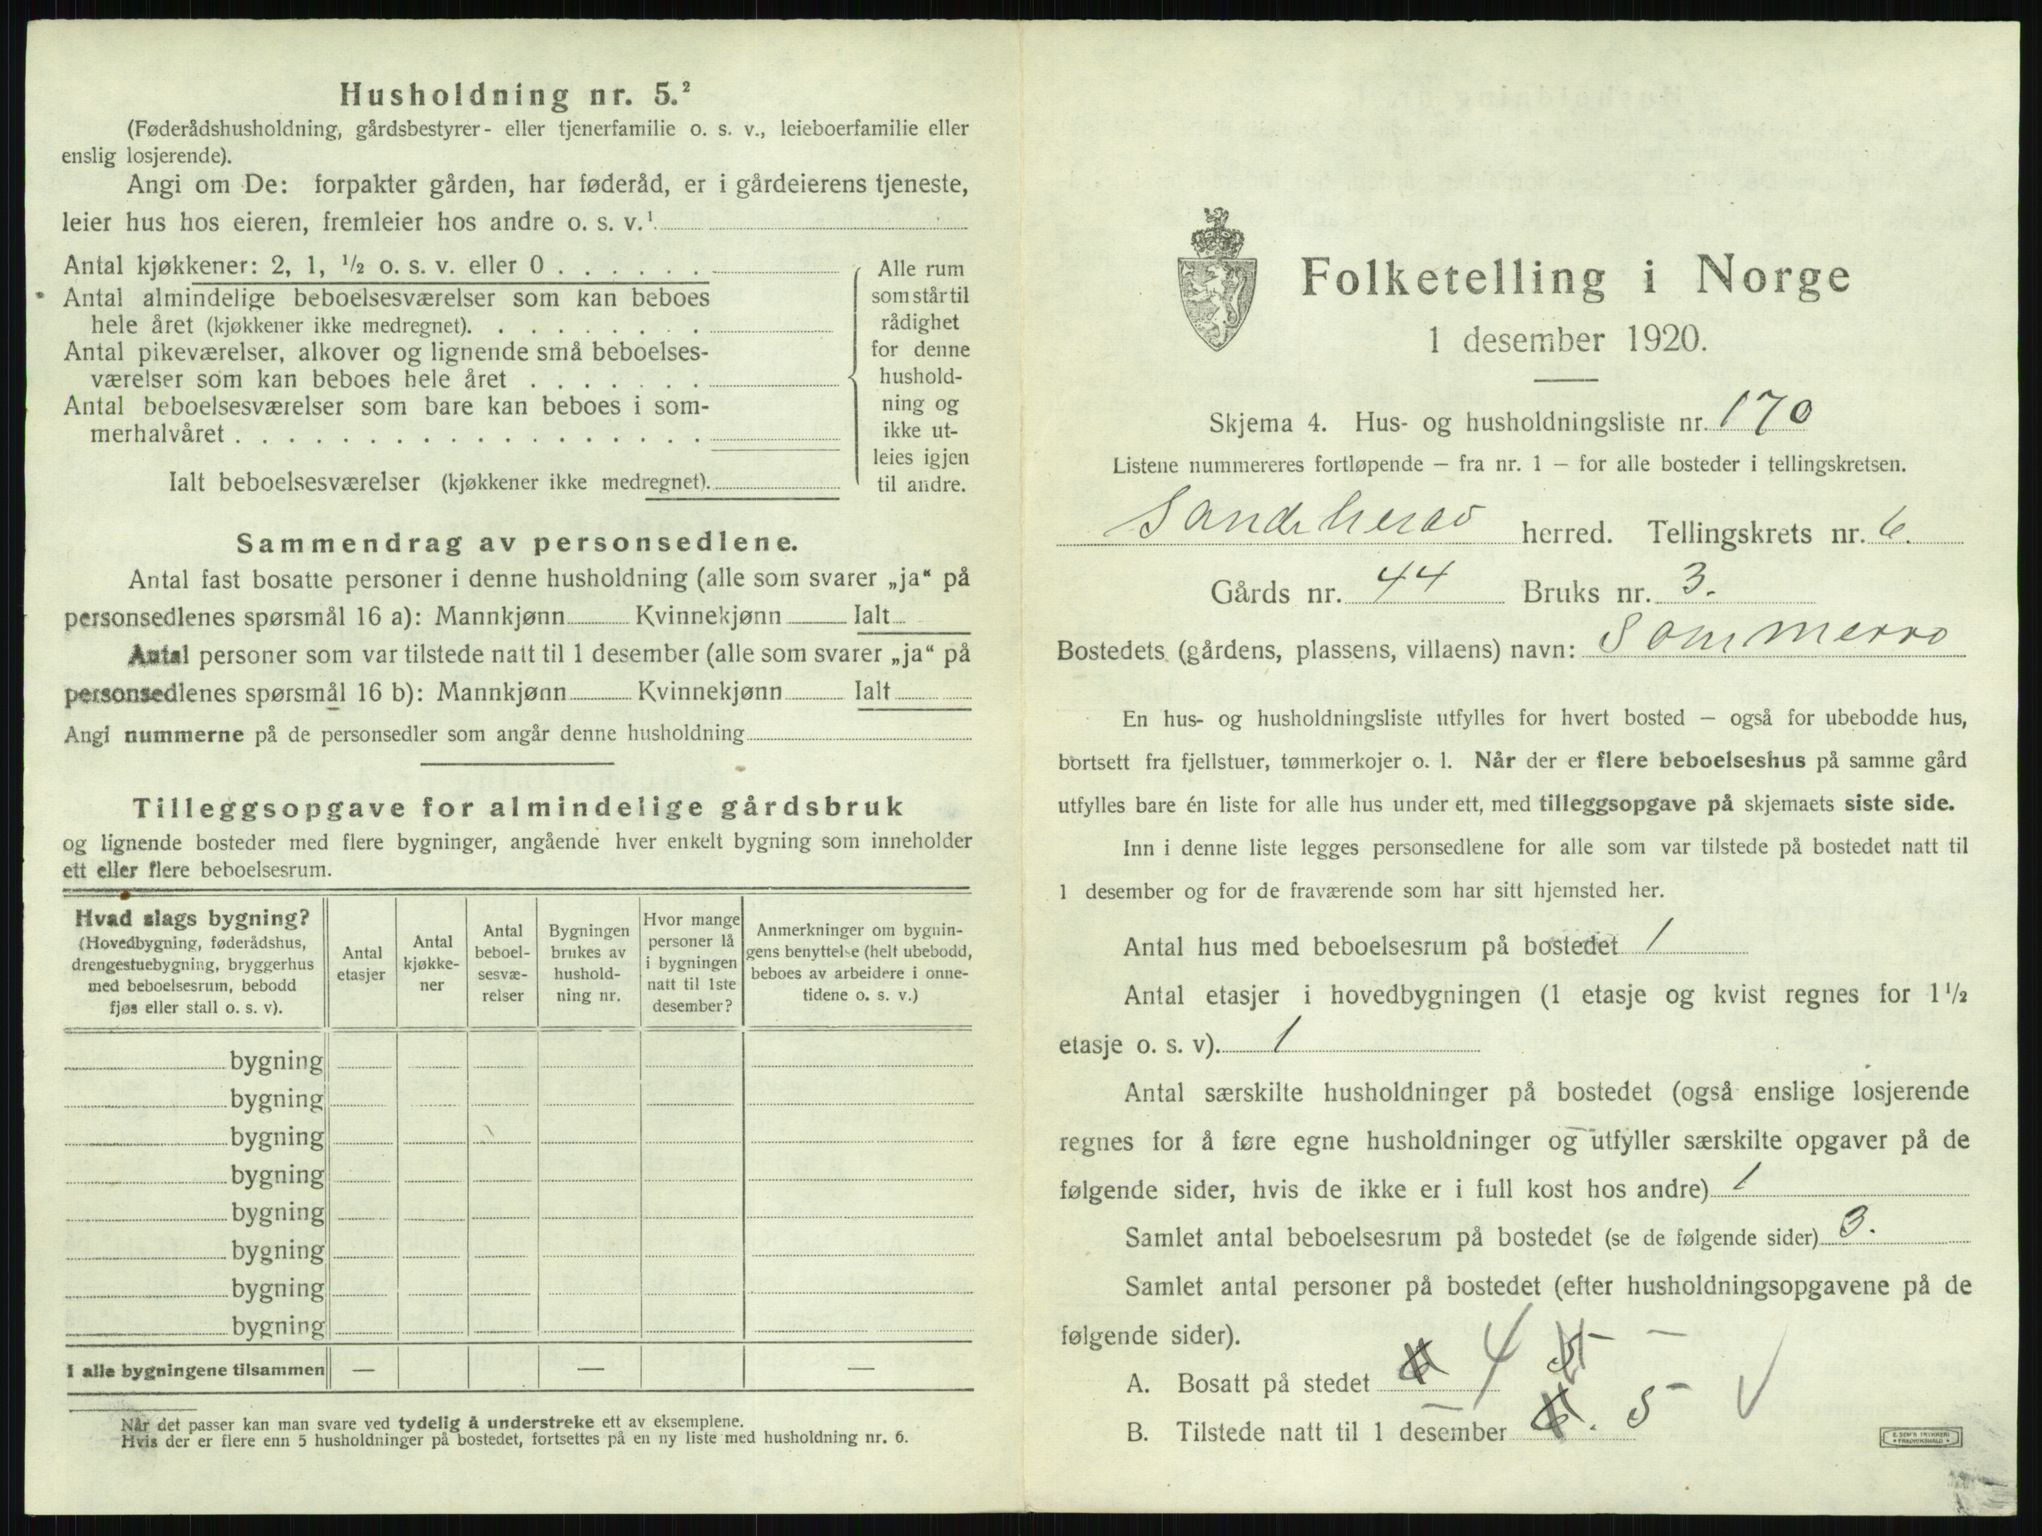 Husholdning nr. 5.²
(Føderådshusholdning, gårdsbestyrer- eller tjenerfamilie o. s. v., leieboerfamilie eller
enslig losjerende).
Angi om De: forpakter gården, har føderåd, er i gårdeierens tjeneste,
leier hus hos eieren, fremleier hos andre o. s. v.¹
Antal kjøkkener: 2, 1, ½ o. s. v. eller 0 . . . . . .
Antal almindelige beboelsesværelser som kan beboes
hele året (kjøkkener ikke medregnet). . . . . . . . .
Antal pikeværelser, alkover og lignende små beboelses-
værelser som kan beboes hele året . . . . . . .
Antal beboelsesværelser som bare kan beboes i som-
merhalvåret . . . . . . . . . . . . . . . . . .
Ialt beboelsesværelser (kjøkkener ikke medregnet).
Alle rum
som står til
rådighet
for denne
hushold-
ning og
ikke ut-
leies igjen
til andre.
Sammendrag av personsedlene.
Antal fast bosatte personer i denne husholdning (alle som svarer „ja“ på
personsedlenes spørsmål 16 a): Mannkjønn Kvinnekjønn Ialt
Antal personer som var tilstede natt til 1 desember (alle som svarer „ja“ på
personsedlenes spørsmål 16 b): Mannkjønn Kvinnekjønn Ialt
Angi nummerne på de personsedler som angår denne husholdning
Tilleggsopgave for almindelige gårdsbruk
og lignende bosteder med flere bygninger, angående hver enkelt bygning som inneholder
ett eller flere beboelsesrum.
Hvad slags bygning?
(Hovedbygning, føderådshus,
drengestuebygning, bryggerhus
med beboelsesrum, bebodd
fjøs eller stall o. s. v).
Antal
etasjer
Antal
kjøkke-
ner
Antal
beboel-
sesvæ-
relser
Bygningen
brukes av
hushold-
ning nr.
Hvor mange
personer lå
i bygningen
natt til 1ste
desember?
Anmerkninger om bygnin-
gens benyttelse (helt ubebodd,
beboes av arbeidere i onne-
tidene o. s. v.)
bygning
bygning
bygning
bygning
bygning
bygning
bygning
bygning
I alle bygningene tilsammen — — —
Når det passer kan man svare ved tydelig å understreke ett av eksemplene.
Hvis der er flere enn 5 husholdninger på bostedet, fortsettes på en ny liste med husholdning nr. 6.
Folketelling i Norge
1 desember 1920.
Skjema 4. Hus- og husholdningsliste nr. 170
Listene nummereres fortløpende – fra nr. 1 – for alle bosteder i tellingskretsen.
Sandeherad herred. Tellingskrets nr. 6.
Gårds nr. 44 Bruks nr. 3.
Bostedets (gårdens, plassens, villaens) navn: Sommerro
En hus- og husholdningsliste utfylles for hvert bosted – også for ubebodde hus,
bortsett fra fjellstuer, tømmerkojer o. l. Når der er flere beboelseshus på samme gård
utfylles bare én liste for alle hus under ett, med tilleggsopgave på skjemaets siste side.
Inn i denne liste legges personsedlene for alle som var tilstede på bostedet natt til
1 desember og for de fraværende som har sitt hjemsted her.
Antal hus med beboelsesrum på bostedet 1
Antal etasjer i hovedbygningen (1 etasje og kvist regnes for 1½
etasje o. s. v). 1
Antal særskilte husholdninger på bostedet (også enslige losjerende
regnes for å føre egne husholdninger og utfyller særskilte opgaver på de
følgende sider, hvis de ikke er i full kost hos andre) 1
Samlet antal beboelsesrum på bostedet (se de følgende sider) 3.
Samlet antal personer på bostedet (efter husholdningsopgavene på de
følgende sider).
A. Bosatt på stedet 4
B. Tilstede natt til 1 desember 5
E. SEM'S TRYKKERI
FREDRIKSHALD